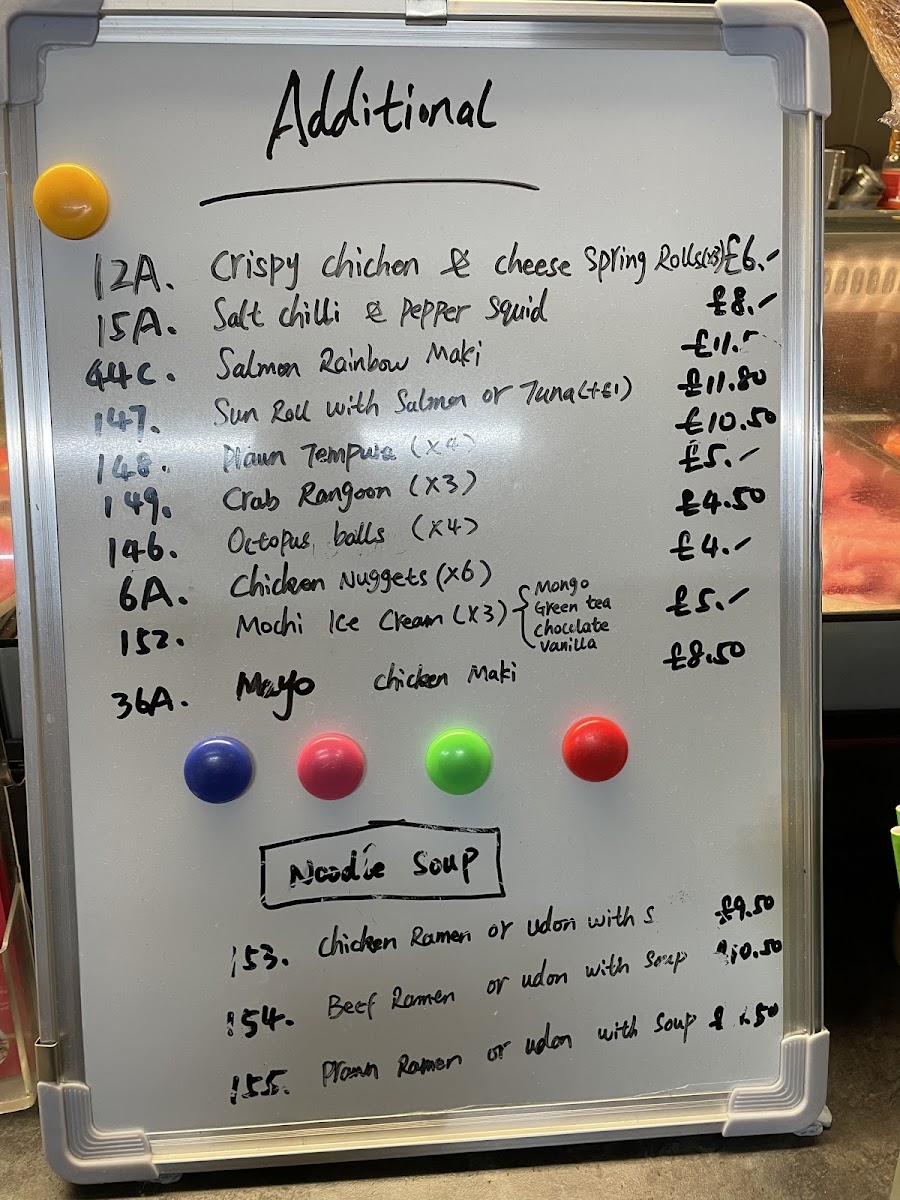 Additional
12A. Crispy chichen & cheese Spring Rolls(x3) £6.-
15A. Salt chilli & Pepper Squid £8.-
44C. Salmon Rainbow Maki £11.5
147. Sun Roll with Salmon or Tuna(+£1) £11.80
148. Prawn Tempura (x4) £10.50
149. Crab Rangoon (x3) £5.-
146. Octopus balls (x4) £4.50
6A. Chicken Nuggets (x6) £4.-
152. Mochi Ice Cream (x3) Mongo £5.-
Green tea
Chocolate
Vanilla
36A. Mayo chicken Maki £8.50
Noodle Soup
153. Chicken Ramen or udon with S £9.50
154. Beef Ramen or udon with Soup 10.50
155. Prawn Ramen or udon with Soup £